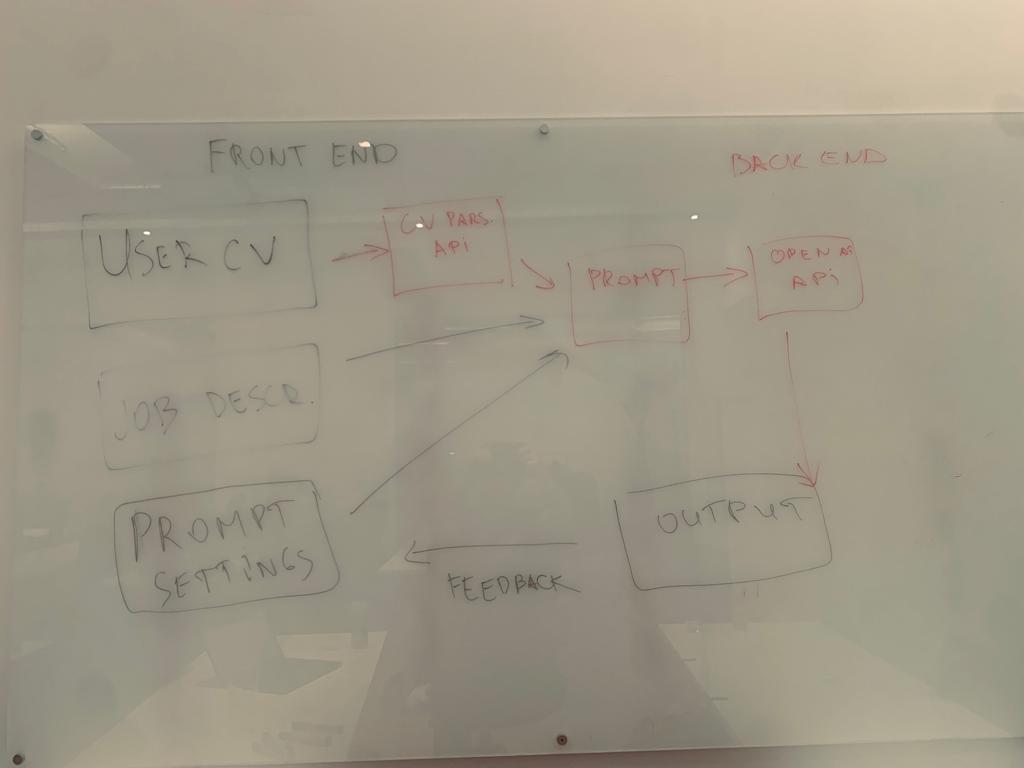 FRONT END
BACK END
USER CV
CV PARS.
APi
PROMPT
OPEN AI
APi
JOB DESCR.
PROMPT
SETTiNGS
OUTPUT
FEEDBACK